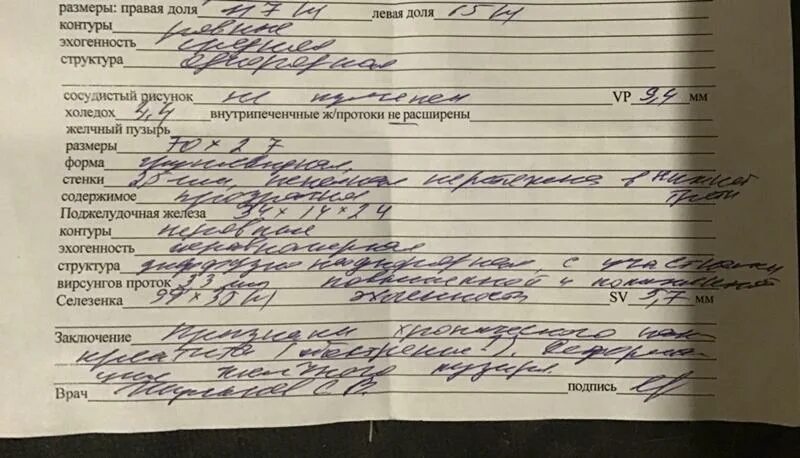 размеры: правая доля 117 левая доля 75
контуры ровные
эхогенность средняя
структура однородная
сосудистый рисунок не изменен VP 9,4 мм
холедох 4,4 внутрипеченчные ж/протоки не расширены
желчный пузырь
размеры 70 × 27
форма грушевидная,
стенки неполная перетяжка в нижней трети
содержимое прозрачное
Поджелудочная железа 34 × 14 × 24
контуры неровные
эхогенность неравномерная
структура диффузно неоднородная, с участками
вирсунгов проток 3,3 мм повышенной и пониженной
Селезенка 99 × 50 эхогенности SV 5,7 мм
Заключение Признаки хронического пан-
креатита (обострение?). Деформа-
ция желчного пузыря.
Врач С.В. подпись